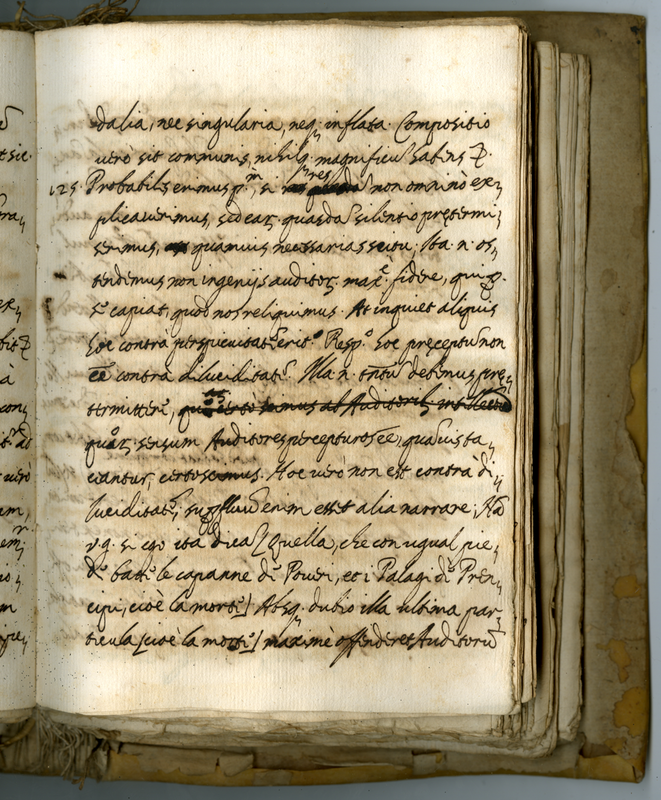 dalia, nec singularia, neq; inflata. Compositio
uerò sit communis, nihilq; magnificũ habẽs &.
125. Probabiles erimus p.m, si res non omninò ex,
plicauerimus, sed eaȝ quasdã silentio pretermi,
serimus, quamuis necessarias scitu; Ita. n. os,
tendemus non ingenijs auditoȝ maxe. fidere, qui
capiat, quod nos reliquimus. At inquiet aliquis
hoc contrà perspicuitatẽ erit. Respo. hoc preceptũ non
ẽẽ contra diluciditatẽ. Illa. n. tñtũ debemus pre,
termittere,
quoȝ sensum Auditores percepturos ẽẽ, quãuis ta,
ceantur, certo scimus. Hoc uerò non est contrà di,
luciditatẽ, supfluũ enim esset alia narrare; Nã
v.g. si ego ità dicã [Quella, che con ugual pie,
de batte le capanne de' Poueri, et i Palagi de' Pren,
cipi, cioè la morte] Absq; dubio illa ultima par,
ticula [cioè la morte] maximè offenderet Auditorũ